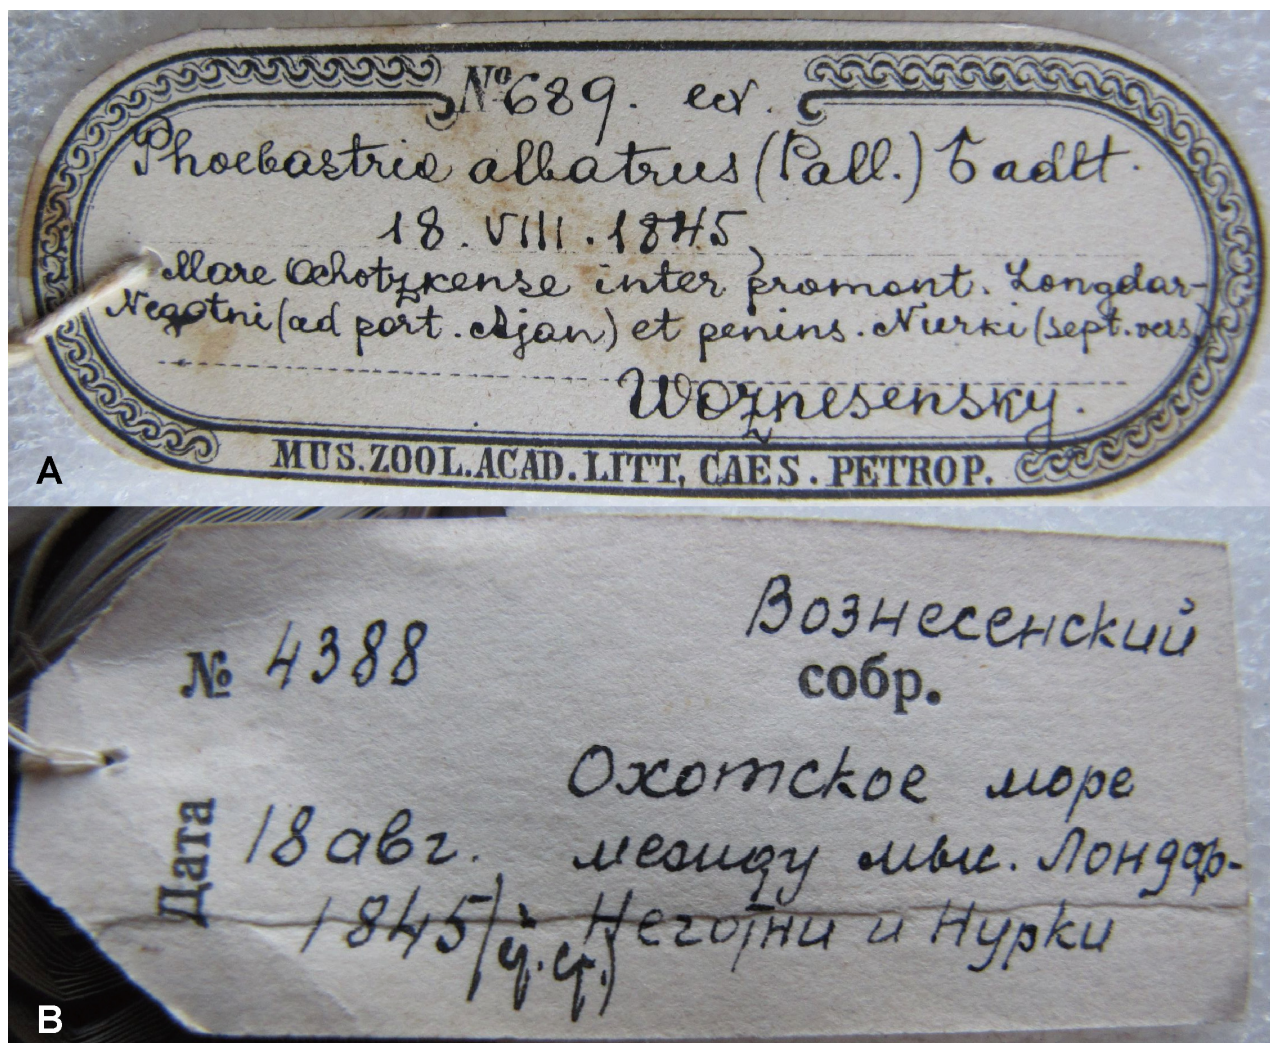 № 689. ex.
Phoebastria albatrus (Pall.) ♄ adlt.
18. VIII. 1845,
Mare Ochotzkense inter promont. Longdar-
Negotni (ad port. Ajan) et penins. Nurki (sept. vers.)
Woznesensky.
MUS. ZOOL. ACAD. LITT, CAES. PETROP.
A
Вознесенский
№ 4388
собр.
Охотское море
Дата 18 авг. между мыс. Лондар-
1845 Неготни и Нурки
B